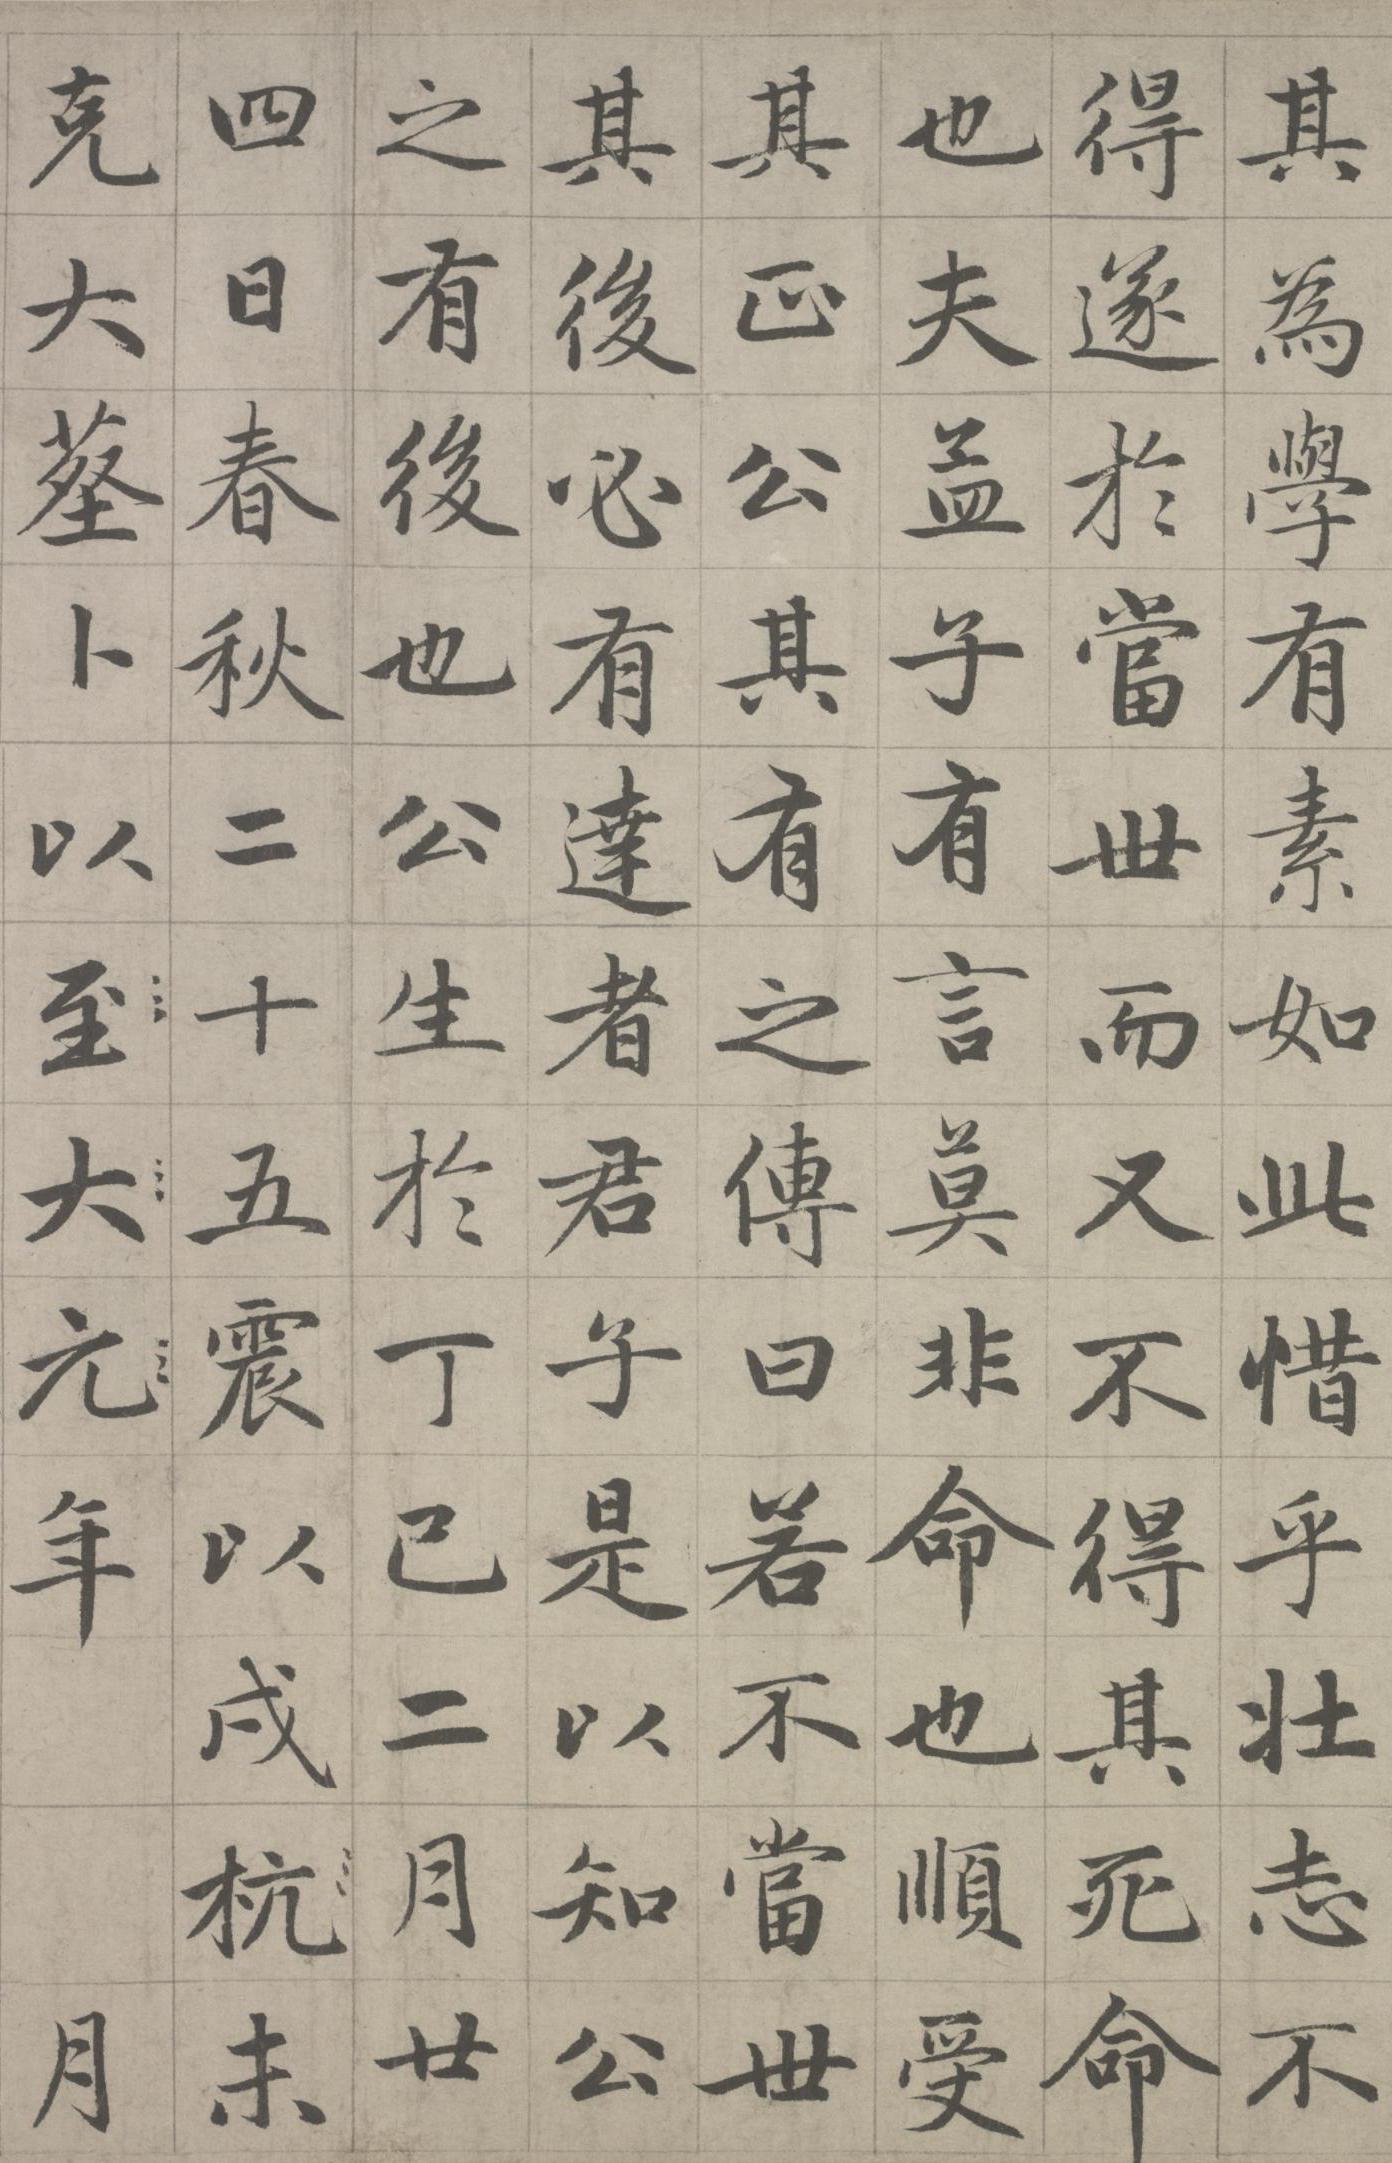 其為學有素如此惜乎壯志不
得遂於當世而又不得其死命
也夫孟子有言莫非命也順受
其正公其有之傳曰若不當世
其後必有達者君子是以知公
之有後也公生於丁巳二月廿
四日春秋二十五震以戍杭未
克大葬卜以至大元年　　月